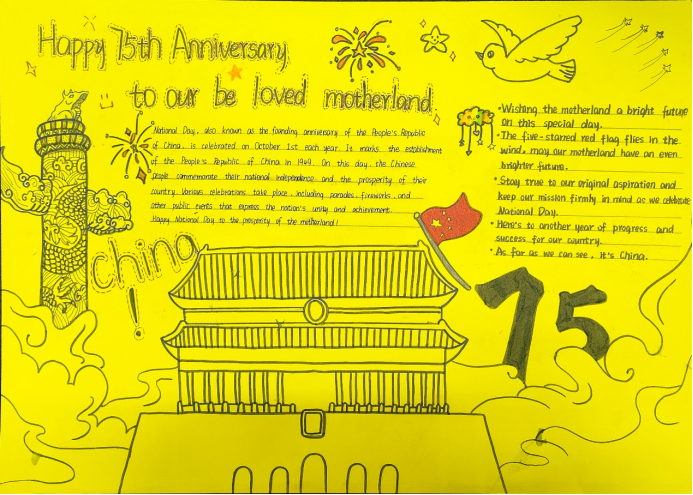 Happy 75th Anniversary
to our be loved motherland
National Day, also known as the founding anniversary of the People's Republic
of China, is celebrated on October 1st each year. It marks the establishment
of the People's Republic of China in 1949. On this day, the Chinese
people commemorate their national independence and the prosperity of their
country. Various celebrations take place, including parades, fireworks, and
other public events that express the nation's unity and achievement.
Happy National Day to the prosperity of the motherland!
China!
•Wishing the motherland a bright future
on this special day.
•The five-starred red flag flies in the
wind, may our motherland have an even
brighter future.
•Stay true to our original aspiration and
keep our mission firmly in mind as we celebrate
National Day.
•Here's to another year of progress and
success for our country.
•As far as we can see, it's China.
75